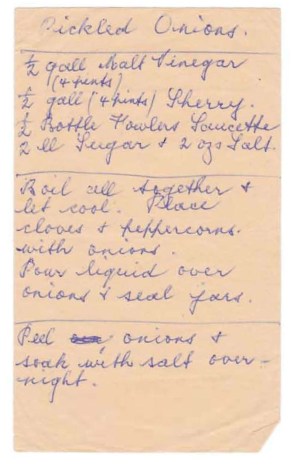 Pickled Onions.
½ gall Malt Vinegar
(4 pints)
½ gall (4 pints) Sherry.
½ Bottle Fowlers Saucette
2 ll Sugar & 2 ozs Salt.
Boil all together &
let cool. Place
cloves & peppercorns.
with onions.
Pour liquid over
onions & seal jars.
Peel onions &
soak with salt over-
night.